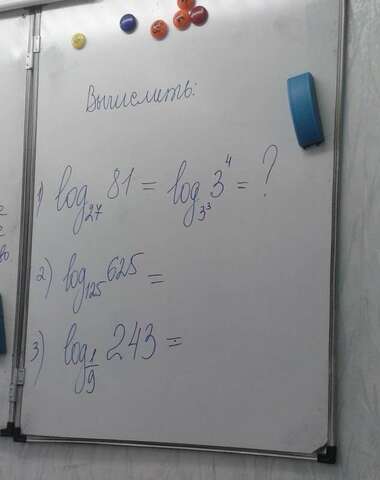 Вычислить:
1) log₂₇ 81 = log₃³ 3⁴ = ?
2) log₁₂₅ 625 =
3) log_{1/9} 243 =